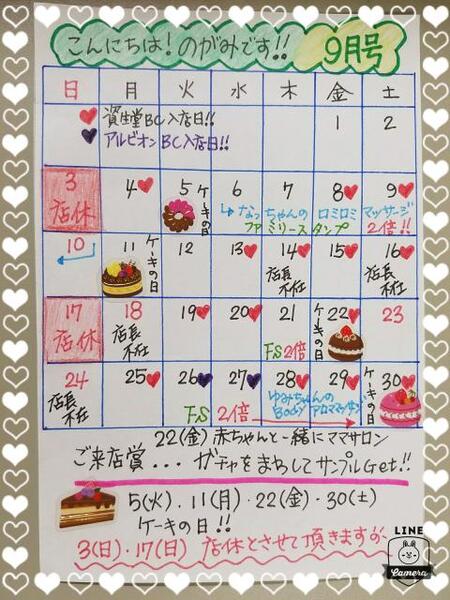 こんにちは!のがみです!! 9月号
日 月 火 水 木 金 土
資生堂BC入店日!!
アルビオンBC入店日!!
1 2
3 4 5 6 7 8 9
店休 ケーキの日 なっちゃんの ロミロミ マッサージ
ファミリースタンプ 2倍!!
10 11 12 13 14 15 16
ケーキの日 店長不在 店長不在
17 18 19 20 21 22 23
店休 店長不在 FS2倍 ケーキの日
24 25 26 27 28 29 30
店長不在 F·S 2倍 ゆみちゃんの Body アロママッサージ ケーキの日
22(金) 赤ちゃんと一緒にママサロン
ご来店賞...ガチャをまわしてサンプルGet!!
5(火).11(月)·22(金)·30(土)
ケーキの日!!
3(日)·17(日) 店休とさせて頂きます
LINE
Camera